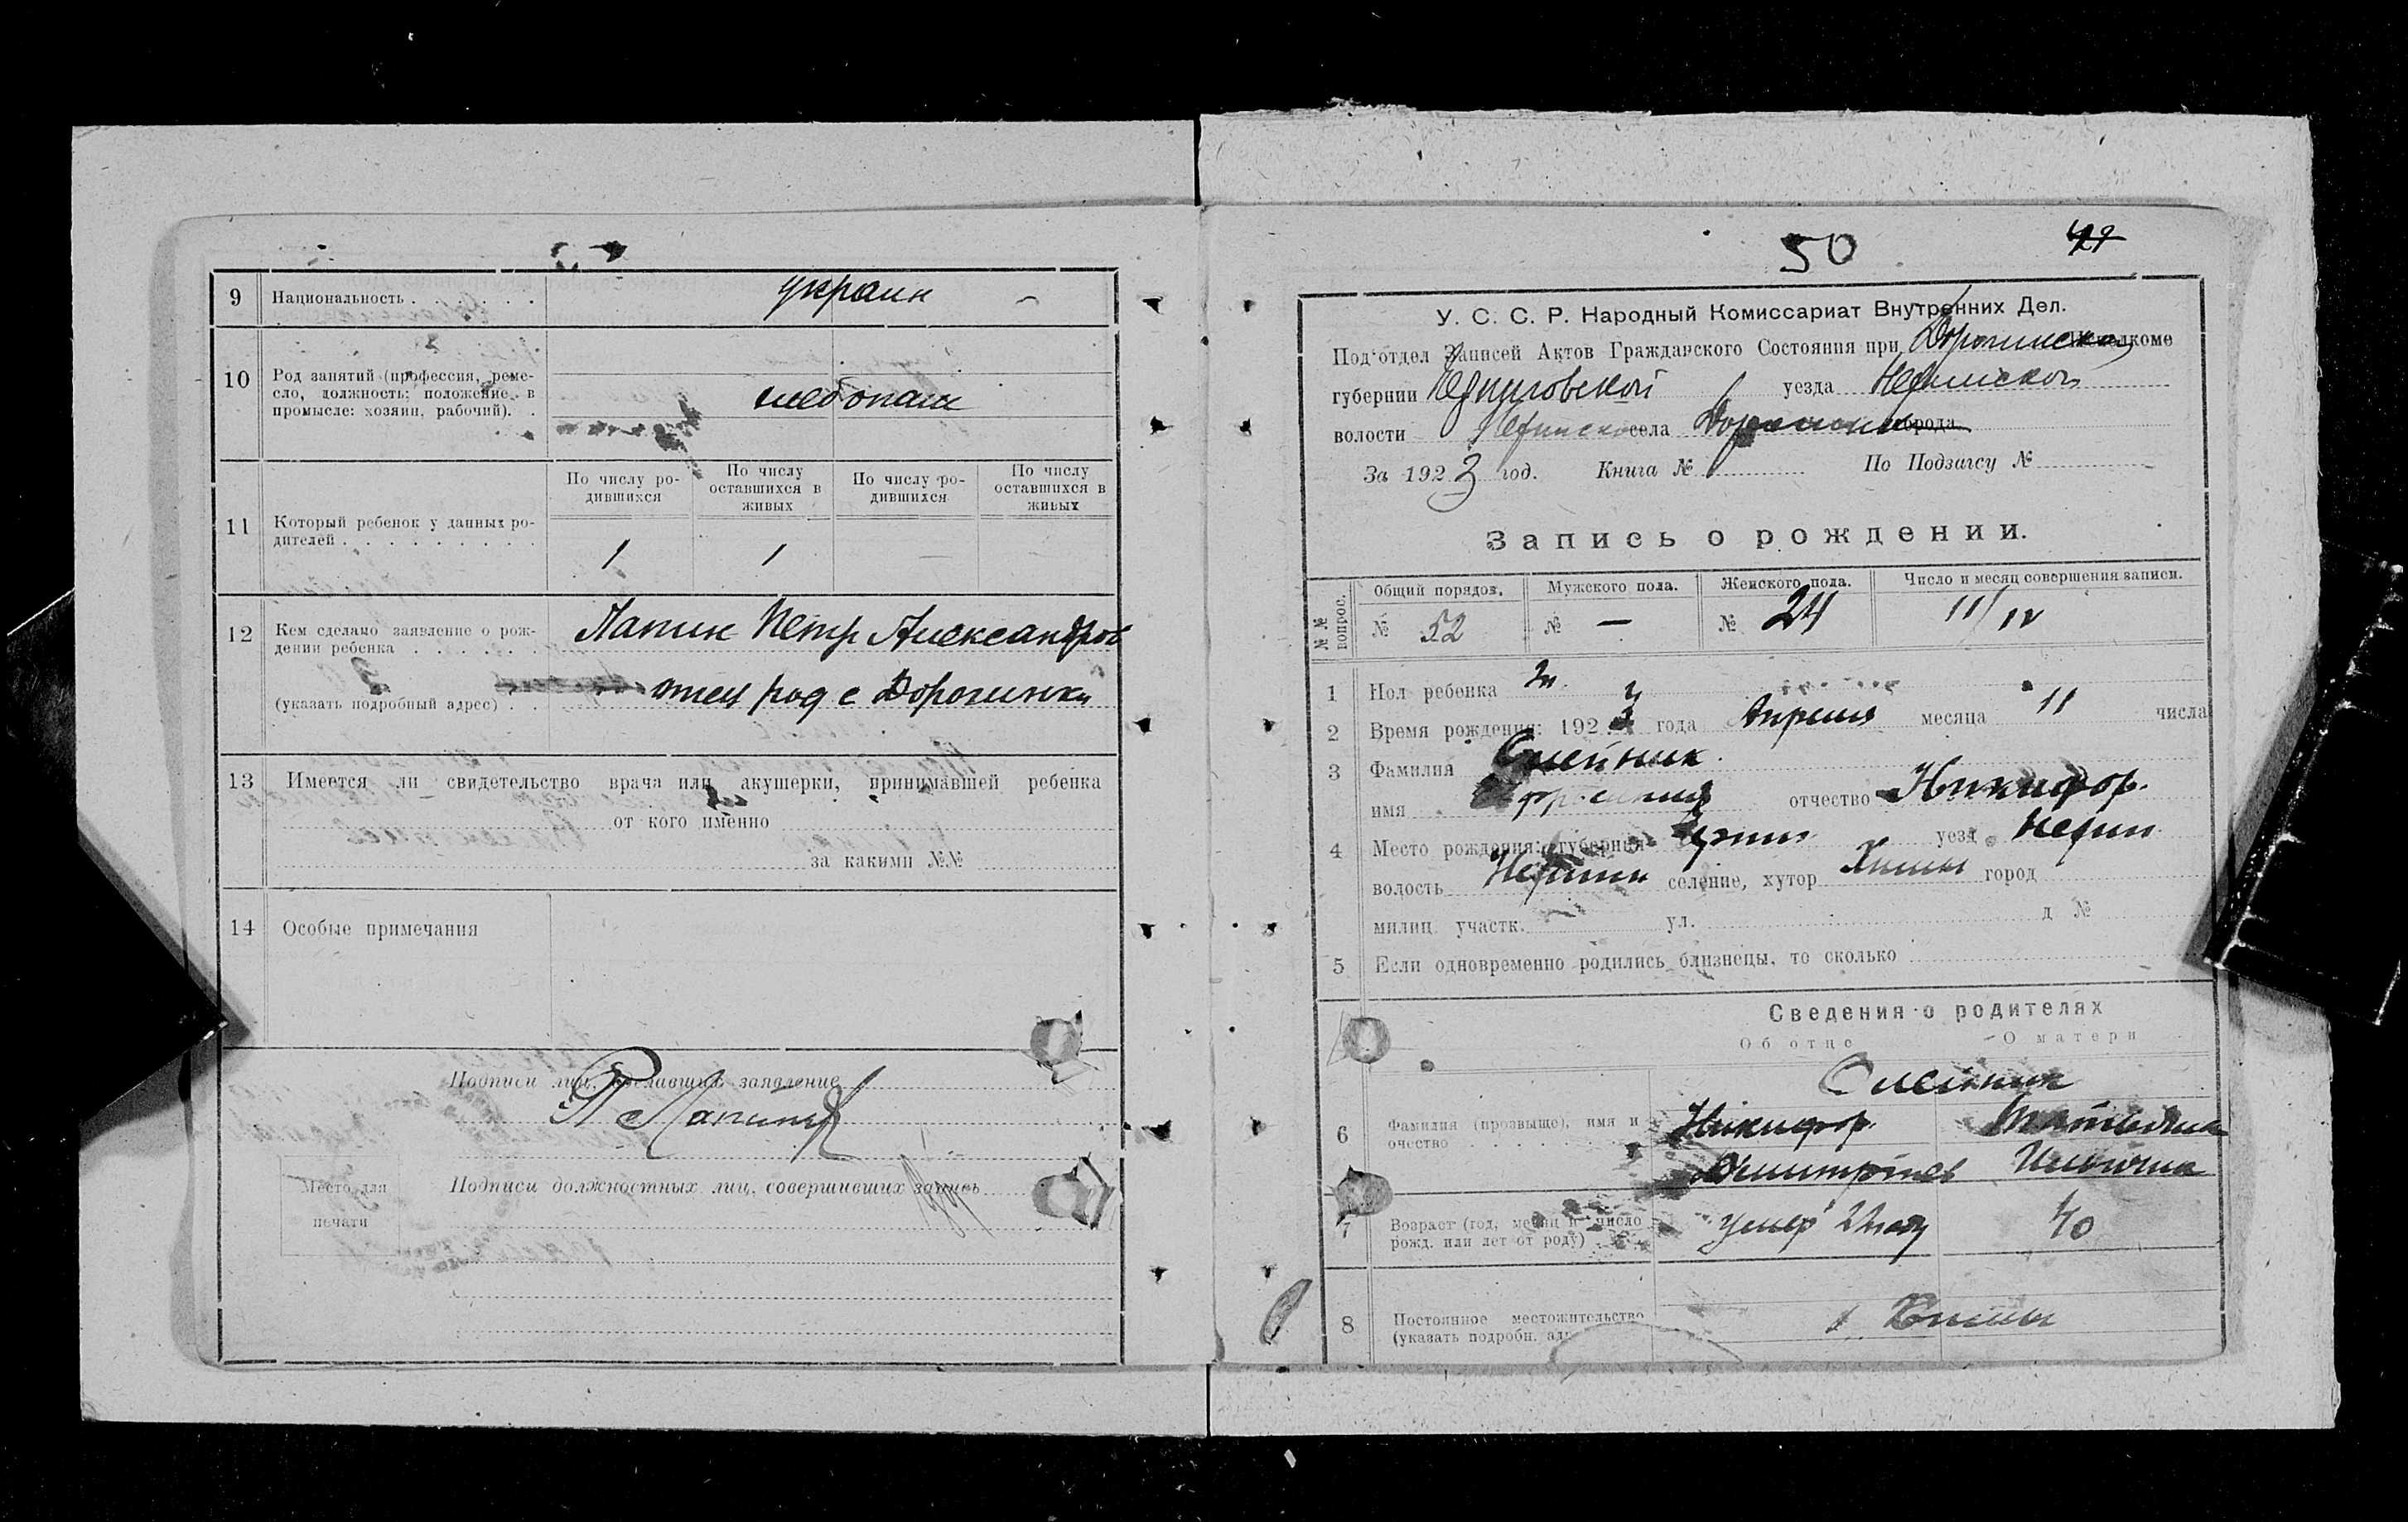 9 Национальность . . . . . . . украин
10 Род занятий (профессия, реме-
сло, должность: положение в
промысле: хозяин, рабочий). . хлебопаш
11 Который ребенок у данных ро-
дителей . . . . . . . . .
По числу ро-
дившихся
По числу
оставшихся в
живых
По числу ро-
дившихся
По числу
оставшихся в
живых
1 1 — —
12 Кем сделано заявление о рож-
дении ребенка . . . . . . Лапин Петр Александров
(указать подробный адрес) . . отец род с Дорогинки
13 Имеется ли свидетельство врача или акушерки, принимавшей ребенка
от кого именно
за какими №№
14 Особые примечания
Подписи лиц, сделавших заявление
П Лапин
Подписи должностных лиц, совершивших запись
Место для
печати
50 49
У. С. С. Р. Народный Комиссариат Внутренних Дел.
Под'отдел Записей Актов Гражданского Состояния при Дорогинском Исполкоме
губернии Черниговской уезда Нежинской
волости Нежинско села Дорогинки города
За 1923 год. Книга № По Подзагсу №
Запись о рождении.
№№ вопрос.
Общий порядов. Мужского пола. Женского пола. Число и месяц совершения записи.
№ 52 № — № 24 11/IV
1 Пол ребенка ж.
2 Время рождения: 1923 года Апреля месяца 11 числа
3 Фамилия Олейник
имя отчество Никифор.
4 Место рождения: губерния Черниг уезд Нежин
волость Нежин селение, хутор Хиши город
милиц. участк. ул. д №
5 Если одновременно родились близнецы, то сколько
Сведения о родителях
Об отце О матери
Олейник
6 Фамилия (прозвыще), имя и
очество . . . . . . . Никифор. Татьяна
Дмитриев Ильична
7 Возраст (год, месяц и число
рожд. или лет от роду) умер 40
8 Постоянное местожительство
(указать подробн. адр Хиши